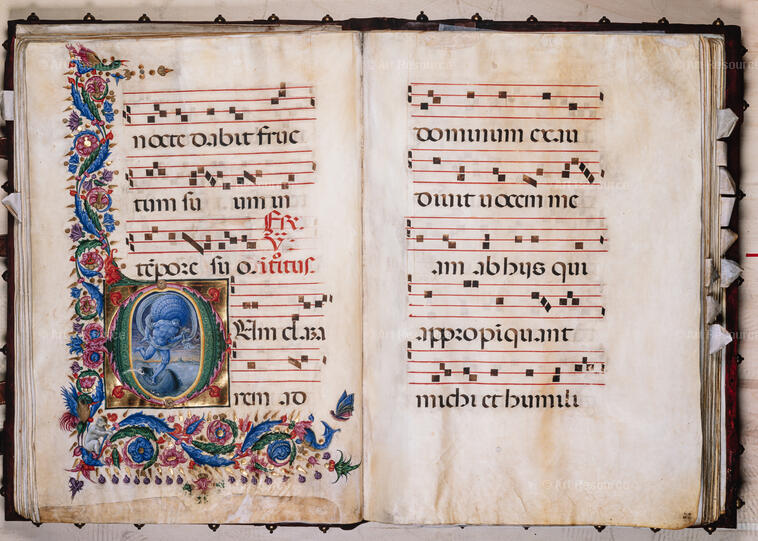 nocte dabit fruc
tum su um in
Fer.
V.
tēpore su o. itroitus.
DUm clama
rem ad
dominum exau
diuit uocem me
am ab hijs qui
appropiquant
michi et humili
© Art Resource